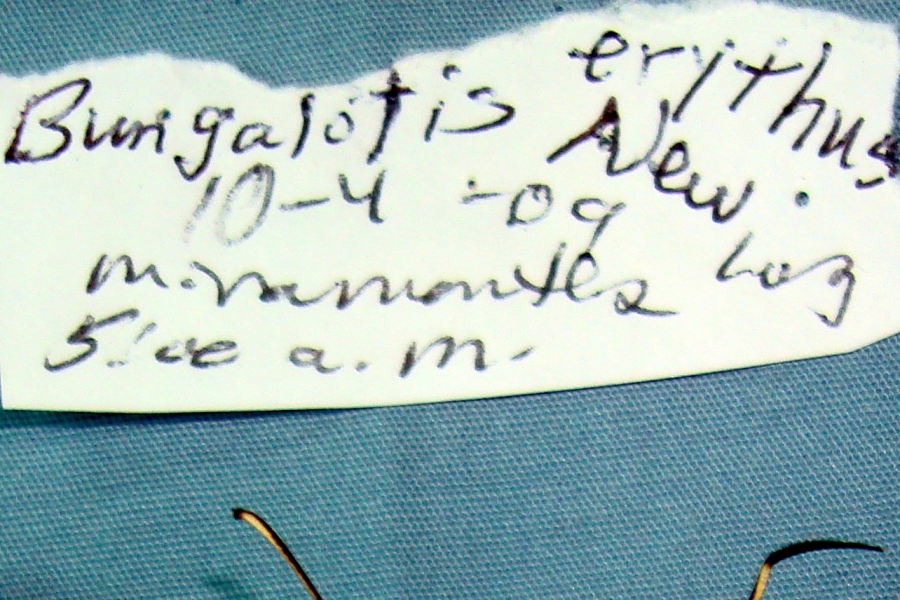 Bungalotis erythus
New.
10-4-09
miramontes Log
5:00 a.m.